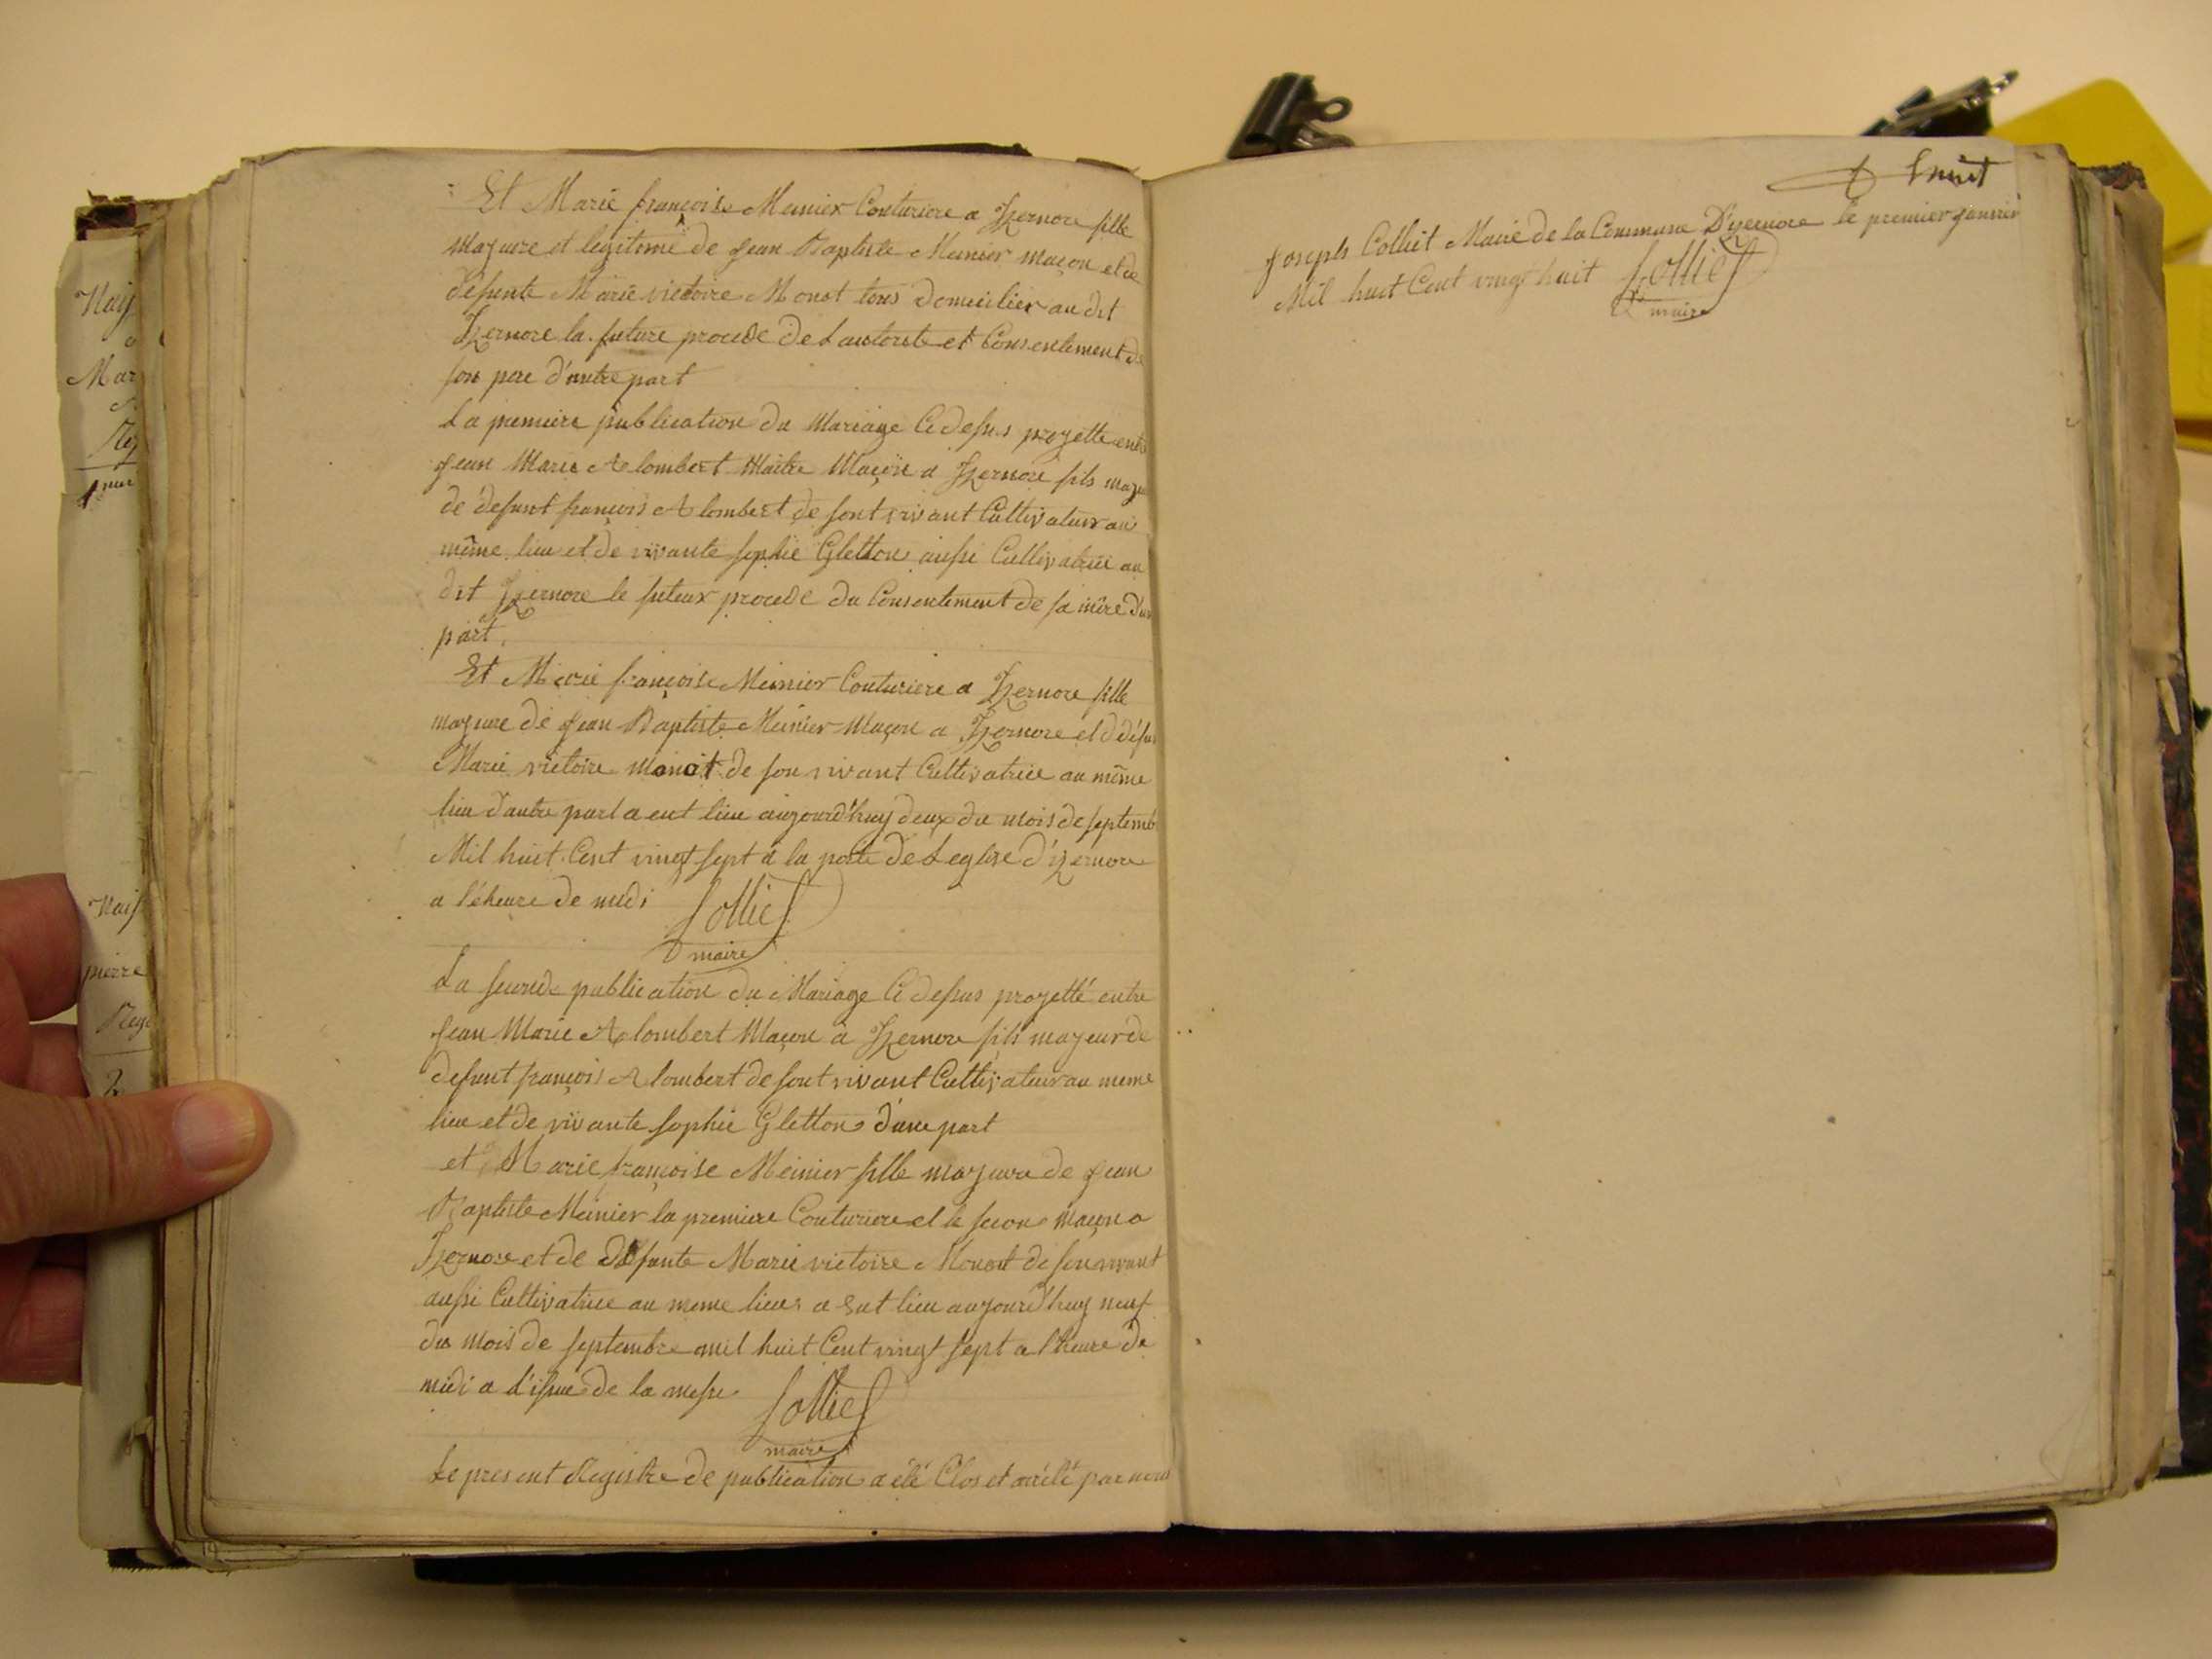 Et Marie françoise Meinier Couturiere a Izernore fille
majeure et legitime de jean Baptiste Meinier maçon et de
defunte Marie victoire Monot tous domicilier au dit
Izernore la future procede de Lautorité et Consentement de
son pere d'autre part
La premiere publication du Mariage Cidessus projetté entre
jean Marie Alombert Maitre Maçon a Izernore fils majeur
de defunt françois Alombert de sont vivant Cultivateur au
même lieu et de vivante sophie Gletton aussi Cultivatrice au
dit Izernore le futeur procede du Consentement de sa mère d'une
part.
Et Marie françoise Meinier Couturiere a Izernore fille
majeure de jean Baptiste Meinier Maçon a Izernore et d défun
Marie victoire Monot de son vivant Cultivatrice au même
lieu d'autre part a eut lieu aujourd'huy deux du mois de septemb
Mil huit Cent vingt sept a la porte de Leglise d'izernore
a l'éheure de midi Colliet
maire
La seconde publication du Mariage Cidessus projetté entre
jean Marie Alombert Maçon a Izernore fils majeur de
defunt françois Alombert de sont vivant Cultivateur au meme
lieu et de vivante sophie Gletton d'une part
et Marie françoise Meinier fille majeure de jean
Baptiste Meinier la premiere Couturiere et le secon maçon a
Izernore et de défunte Marie victoire Monot de son vivant
aussi Cultivatrice au meme lieu a eut lieu aujourd'huy neuf
du mois de septembre mil huit Cent vingt sept a l'heure de
midi a l'issue de la messe Colliet
maire
Le present Registre de publication a été Clos et arrété par nous
huit
Joseph Colliet Maire de la Commune D'yzernore le premier janvier
Mil huit Cent vingt huit Colliet
maire
Nais
Mar
Reg
Naiss
pierre
Reg
2